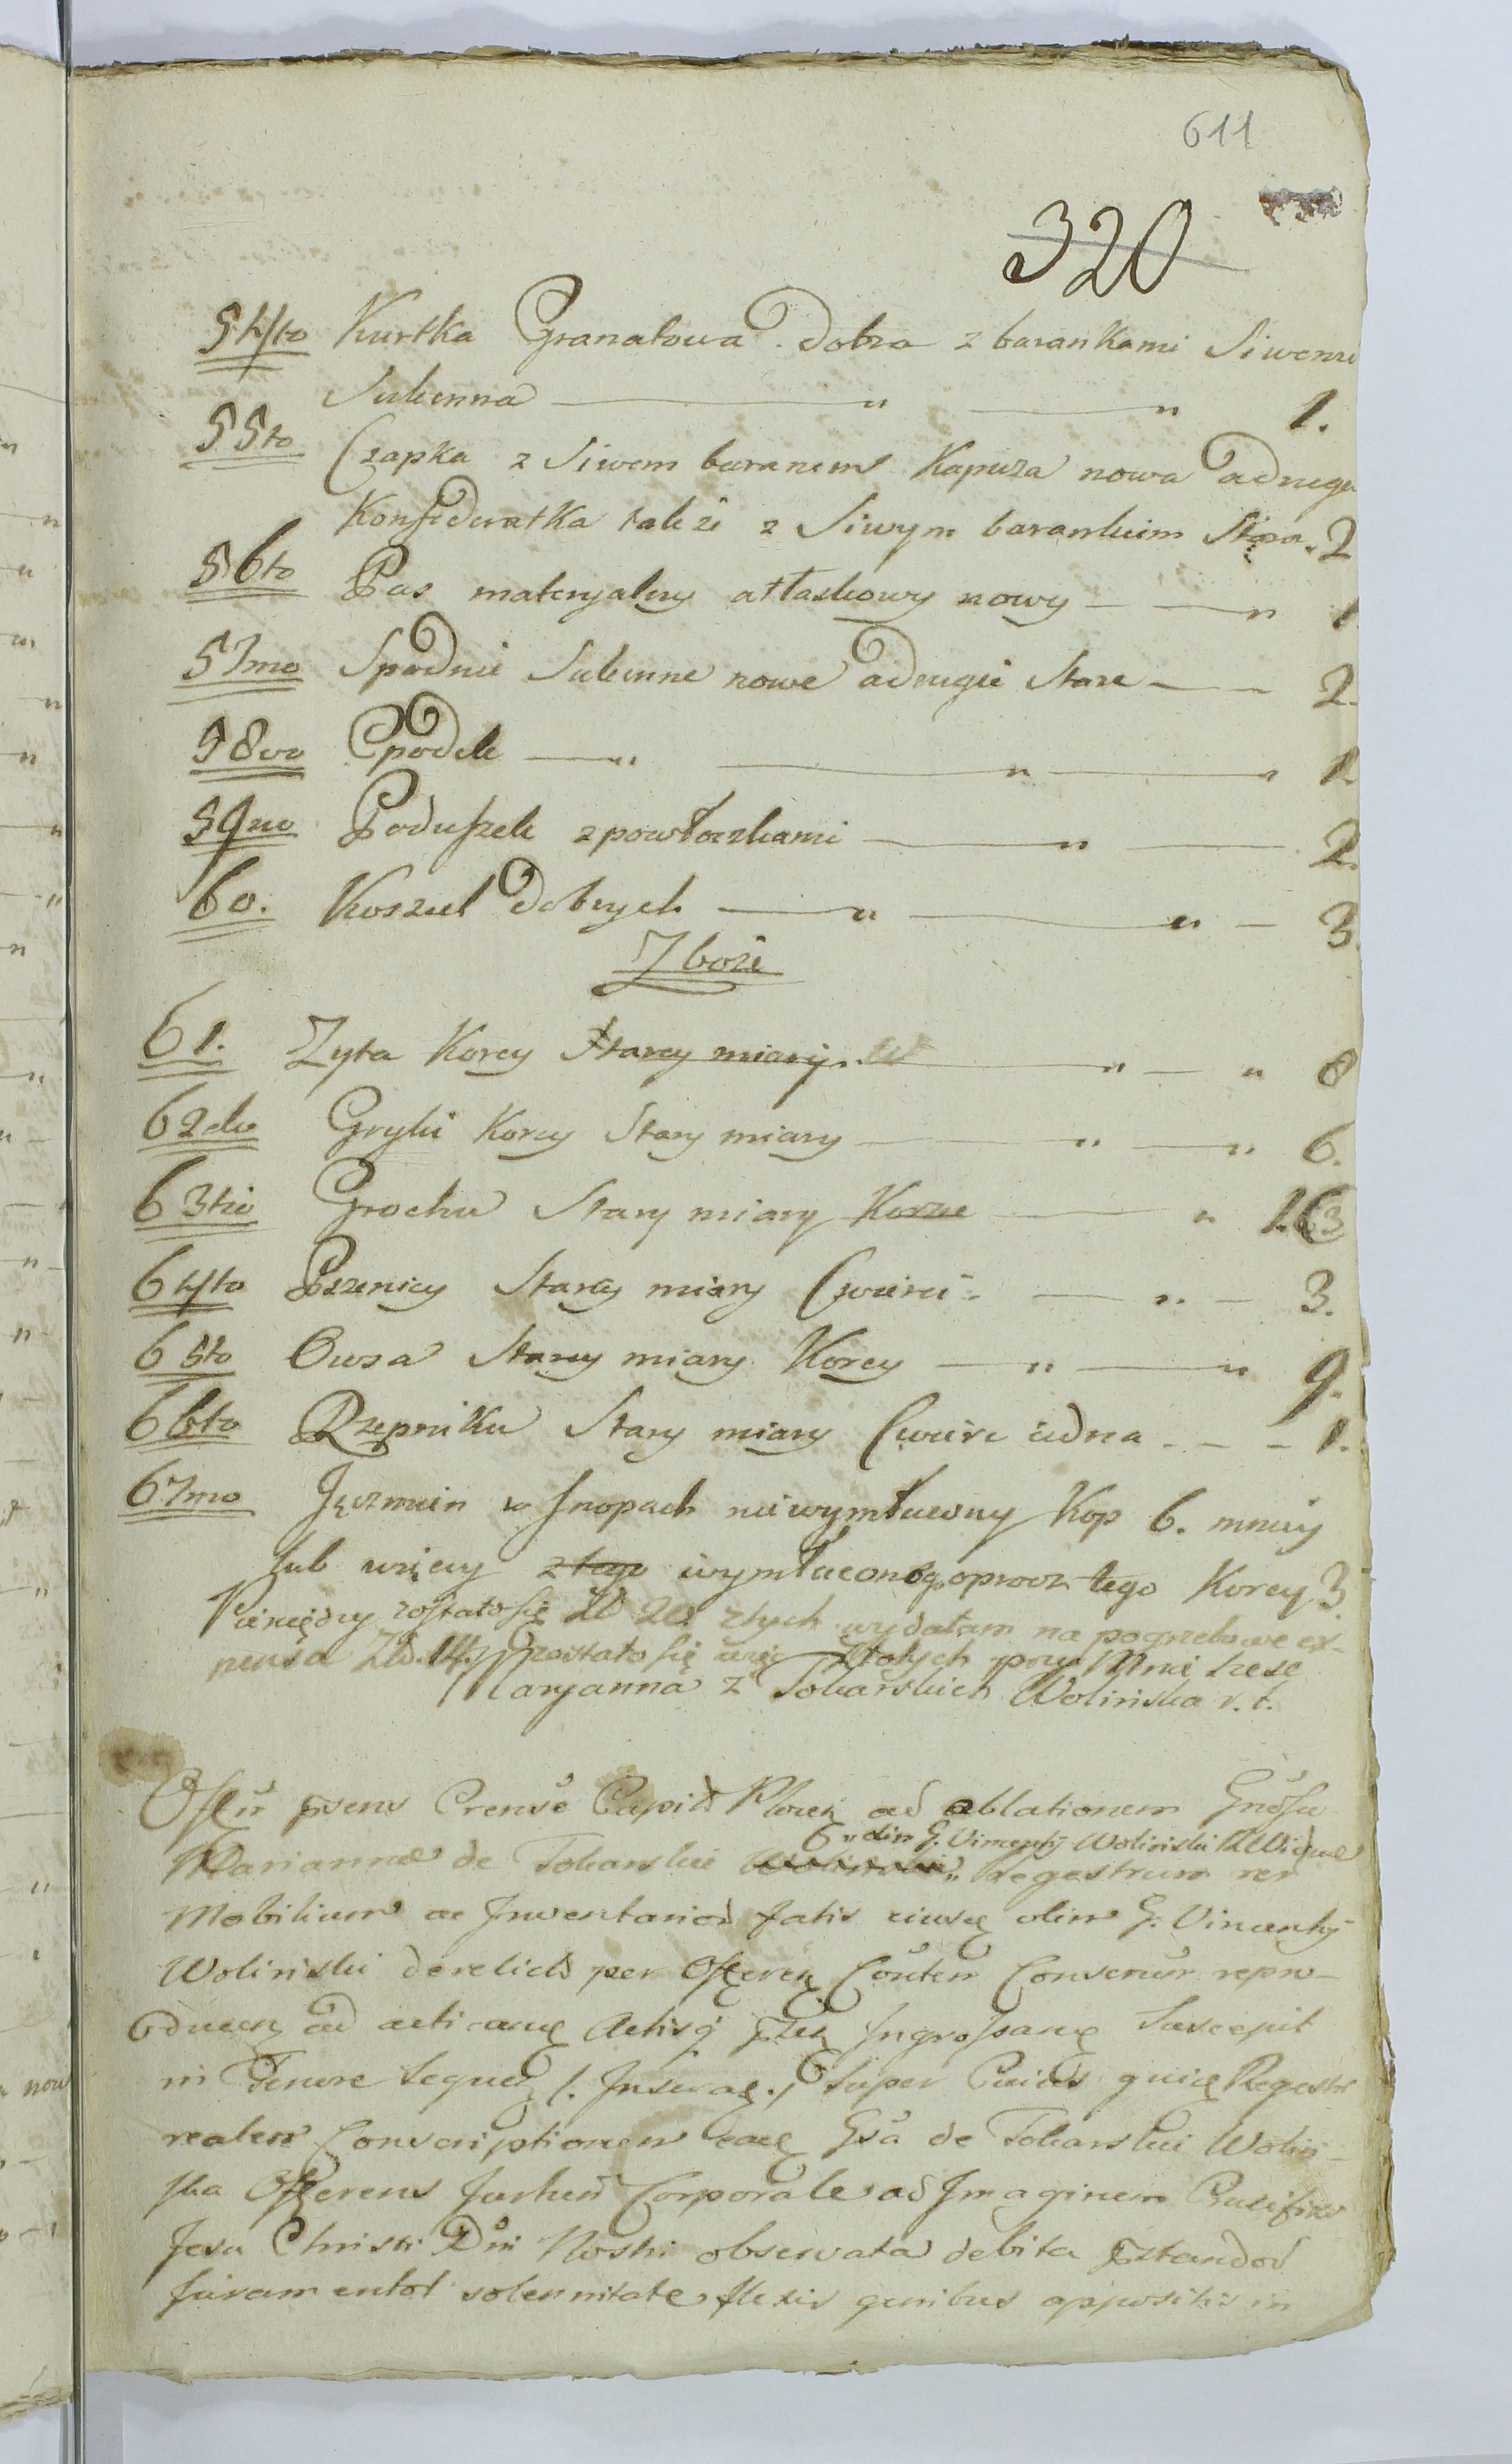 611
320
54to Kurtka Granatowa dobra z barankami Siwemi
Sukienna — " — " 1.
55to Czapka z Siwem baranem Kapuza nowa adruga
Konfederatka także z Siwym barankiem Stara. 2
56to Pas materyalny atłaskowy nowy — — " 1
57mo Spodnie Sukienne nowe adrugie Stare — — 2.
58vo Spodek — " — " — " 1.
59no Poduszek z powłoczkami — " — 2.
60. Koszul dobrych — " — " — 3.
Zboże
61. Zyta Korcy Starey miary — " — " 8
62do Gryki Korcy Stary miary — " — " 6.
63tio Grochu Stary miary Korzec — "
64to Pszenicy Starey miary Cwierci — " — 3.
65to Owsa Starey miary Korcy — " — " 9.
66to Rzepniku Stary miary Cwierc iedna - - - 1.
67mo Jęczmien w Snopach niewymłucony Kop 6. mniey
lub więcy ztego wymłuconego oprocz tego Korcy 3.
Pieniędzy zostało się Zł 20. złtych wydałam na pogrzebowe ex-
pensa Zł. 14. pozostało się więc Złotych przy Mnie szesc
Maryanna z Tokarskich Wolińska v. t.
Offũ pñsens Crense Capit Plocen ad oblationem Gnosa
olim G. Vincentij Woliński Vidua
Marianna de Tokarskie Regestrum rer
Mobilium ac Inventarior fatis eiusq olim G. Vincentij
Woliński derelict per Offeren Conten Conscrur repro-
ducen ad acticanq Actisq Ingrossanq Suscepit
in Tenore Sequen /. Inserat ./ Super Cuius quiq Regestri
realem Conscriptionem eaq Gsa de Tokarskie Woliń-
ska Offerens Juxtum Corporale ad Imaginem Crucifixi
Jesu Christi Dni Nostri observata debita pstandor
Juramentor solennitate flexis genibus appositis in